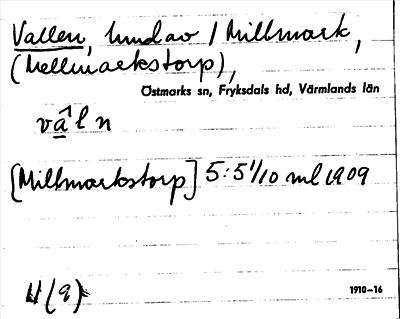 Vallen, hmdav / Millmark,
(Mellmarkstorp),
Östmarks sn, Fryksdals hd, Värmlands län
vâln
[Millmarkstorp] 5:5 1/10 ml 1909
1910–16